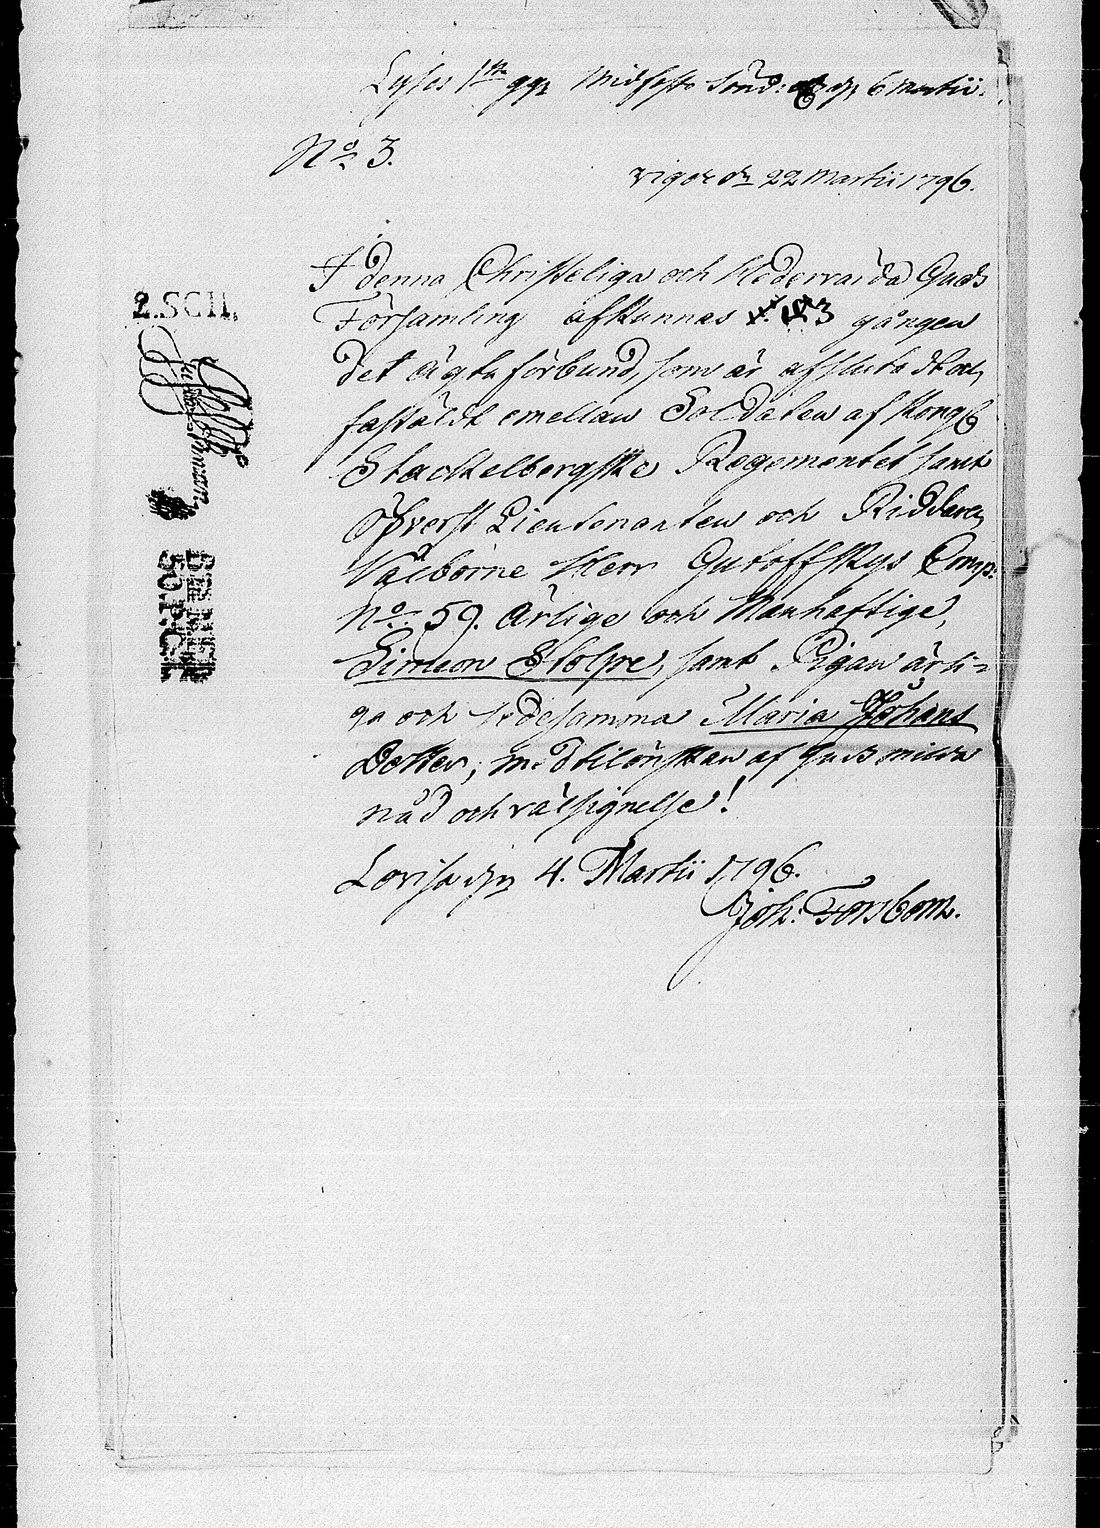 Lyses 1sta ggn Midfasto Sönd: d 6 Martii.
No 3.
vigde dn 22 Martii 1796.
I denna Christeliga och Hedervärda Guds
Församling afkunnas 3 gången
det ägta förbund, som är afslutadt och
fastäldt emellan Soldaten af Kongl
Stackelbergske Regementet samt
öfverst Lieutenanten och Riddaren
Välborne Herr Gutoffskys Comp:
No 59. Ärlige och Manhaftige,
Simeon Stolpe, samt Pigan ärli-
ga och sedesamma Maria Johans
Dotter, med tilönskan af Guds milda
nåd och välsignelse!
Lovisa den 4. Martii 1796.
Joh: Forsbom.
2.SCH.